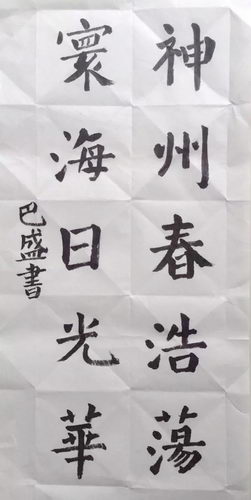 神州春浩蕩
寰海日光華
巴盛書